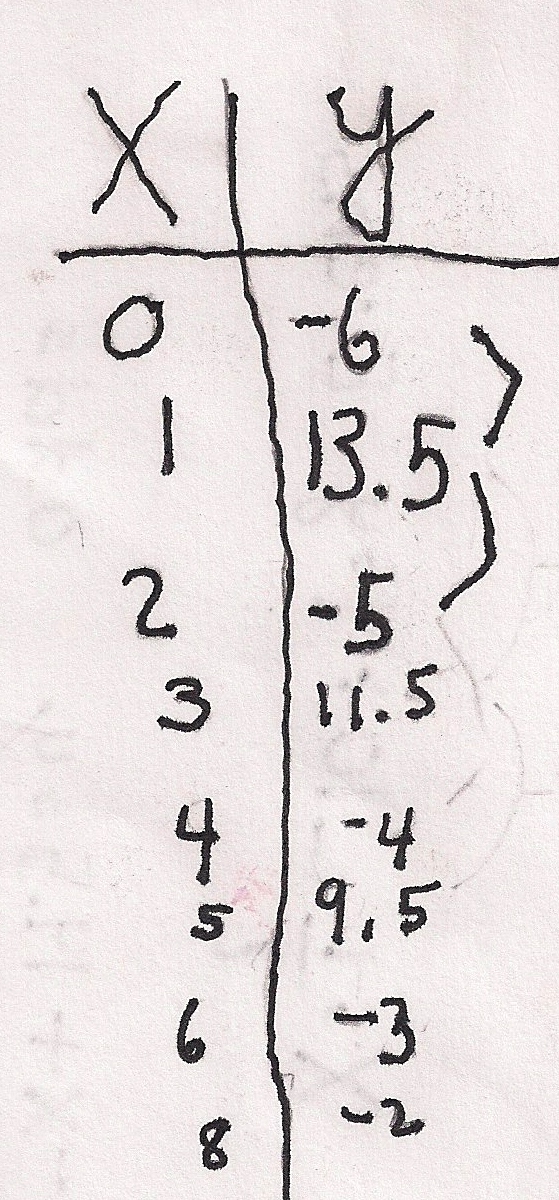 X y
0 -6
1 13.5
2 -5
3 11.5
4 -4
5 9.5
6 -3
8 -2